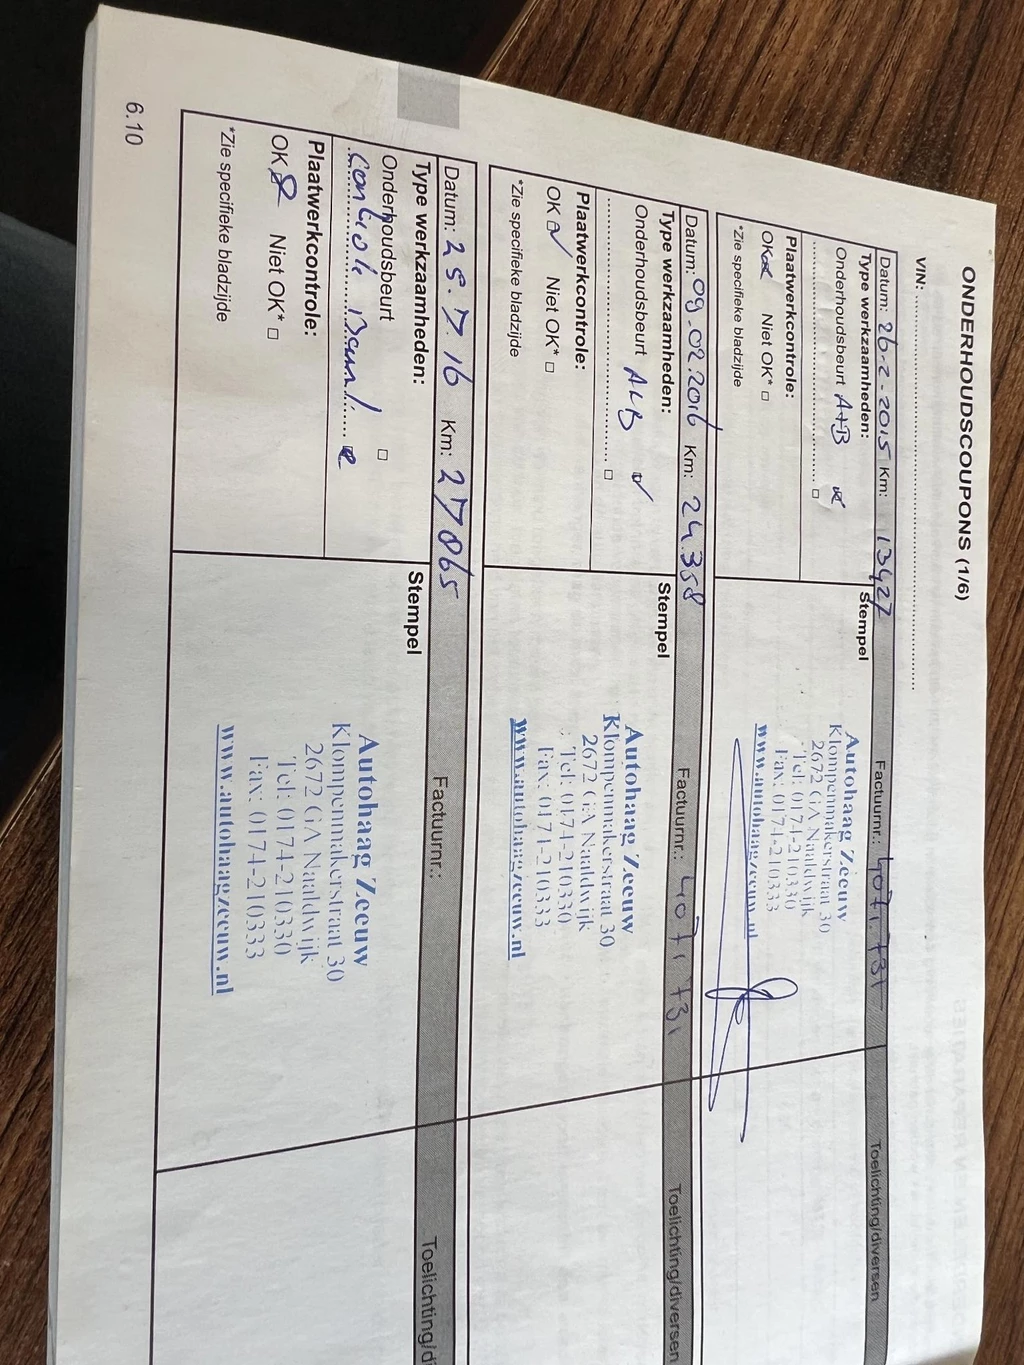 ONDERHOUDSCOUPONS (1/6)
VIN:
Datum: 26-2-2015 Km: 13427 Factuurnr.: Toelichting/diversen
Type werkzaamheden:
Onderhoudsbeurt A+B
Plaatwerkcontrole:
OK Niet OK* □
*Zie specifieke bladzijde
Stempel
Autohaag Zeeuw
Klompenmakerstraat 30
2672 GA Naaldwijk
Tel: 0174-210330
Fax: 0174-210333
www.autohaagzeeuw.nl
Datum: 09.02.2016 Km: 24.358 Factuurnr.: Toelichting/diversen
Type werkzaamheden:
Onderhoudsbeurt
Plaatwerkcontrole:
OK Niet OK* □
*Zie specifieke bladzijde
Stempel
Autohaag Zeeuw
Klompenmakerstraat 30
2672 GA Naaldwijk
Tel: 0174-210330
Fax: 0174-210333
www.autohaagzeeuw.nl
Datum: 25.7.16 Km: 27065 Factuurnr.: Toelichting/d
Type werkzaamheden:
Onderhoudsbeurt □
Plaatwerkcontrole:
OK Niet OK* □
*Zie specifieke bladzijde
Stempel
Autohaag Zeeuw
Klompenmakerstraat 30
2672 GA Naaldwijk
Tel: 0174-210330
Fax: 0174-210333
www.autohaagzeeuw.nl
6.10